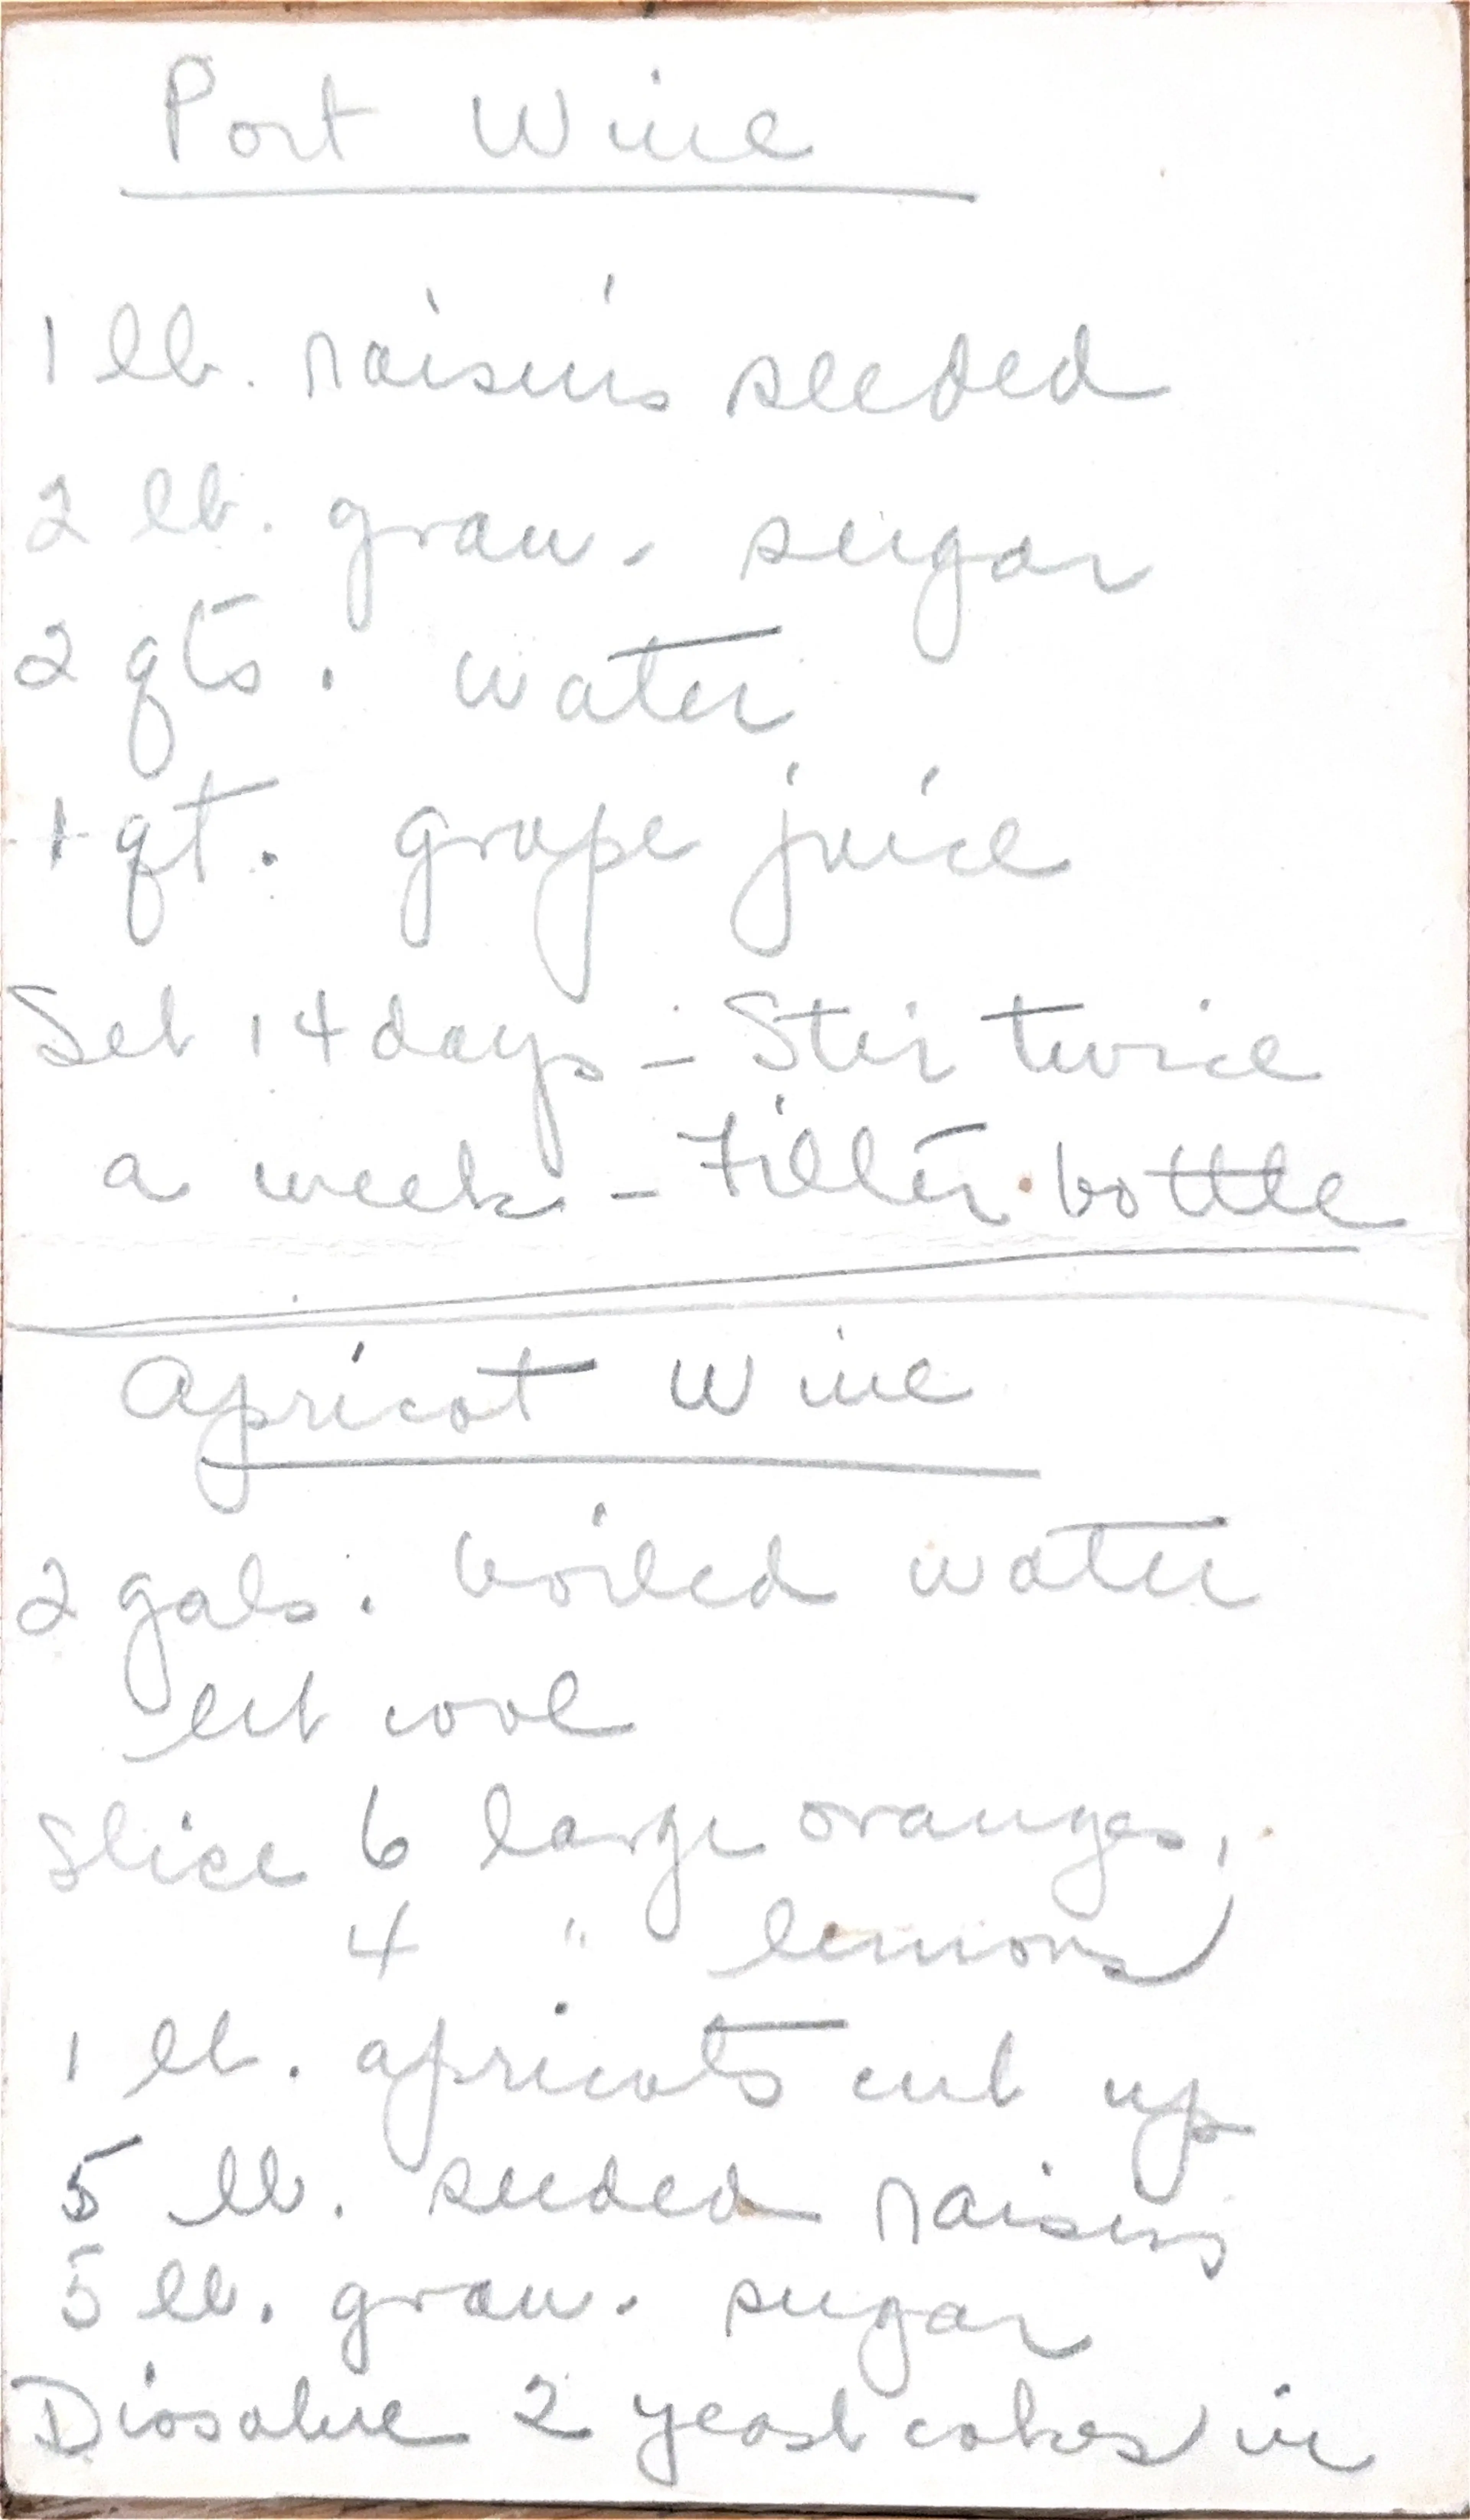 Port Wine
1 lb. raisins seeded
2 lb. gran. sugar
2 qts. water
1 qt. grape juice
Set 14 days - Stir twice
a week - Filter. bottle
Apricot Wine
2 gals. boiled water
let cool
Slice 6 large oranges,
4 " lemons
1 lb. apricots cut up
5 lb. seeded raisins
5 lb. gran. sugar
Dissolve 2 yeast cakes in